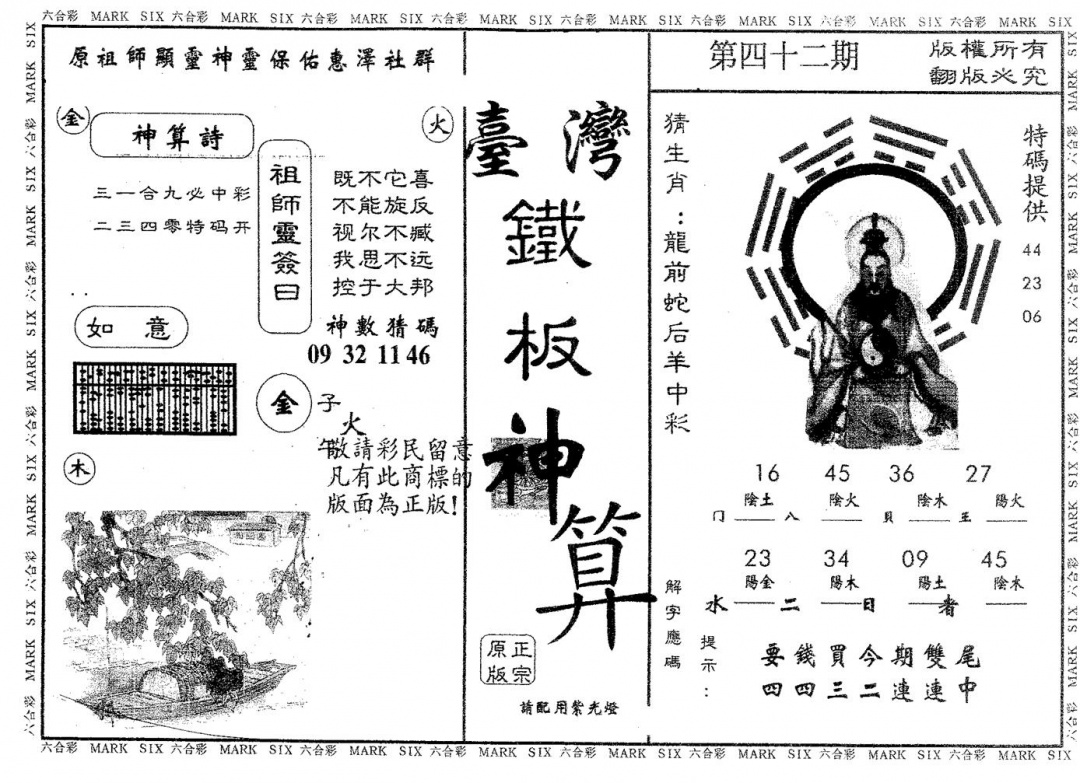 六合彩 MARK SIX 六合彩 MARK SIX 六合彩 MARK SIX 六合彩 MARK SIX 六合彩 MARK SIX 六合彩 MARK SIX 六合彩 MARK SIX 六合彩 MARK SIX
原祖師顯靈神靈保佑惠澤社群
金
神算詩
火
三一合九必中彩
二三四零特码开
祖師靈簽曰
既不它喜
不能旋反
视尔不臧
我思不远
控于大邦
神數猜碼
09 32 11 46
如意
金
子
火
午
敬請彩民留意
凡有此商標的
版面為正版!
木
臺灣
鐵
板
神
算
正宗
原版
請配用紫光燈
第四十二期
版權所有
翻版必究
猜生肖：龍前蛇后羊中彩
特碼提供
44
23
06
16 45 36 27
陰土 陰火 陰木 陽火
门 八 貝 王
23 34 09 45
陽金 陽木 陽土 陰木
水 二 日 者
解字應碼
提示：
要錢買今期雙尾
四四三二連連中
六合彩 MARK SIX 六合彩 MARK SIX 六合彩 MARK SIX 六合彩 MARK SIX 六合彩 MARK SIX 六合彩 MARK SIX 六合彩 MARK SIX 六合彩 MARK SIX